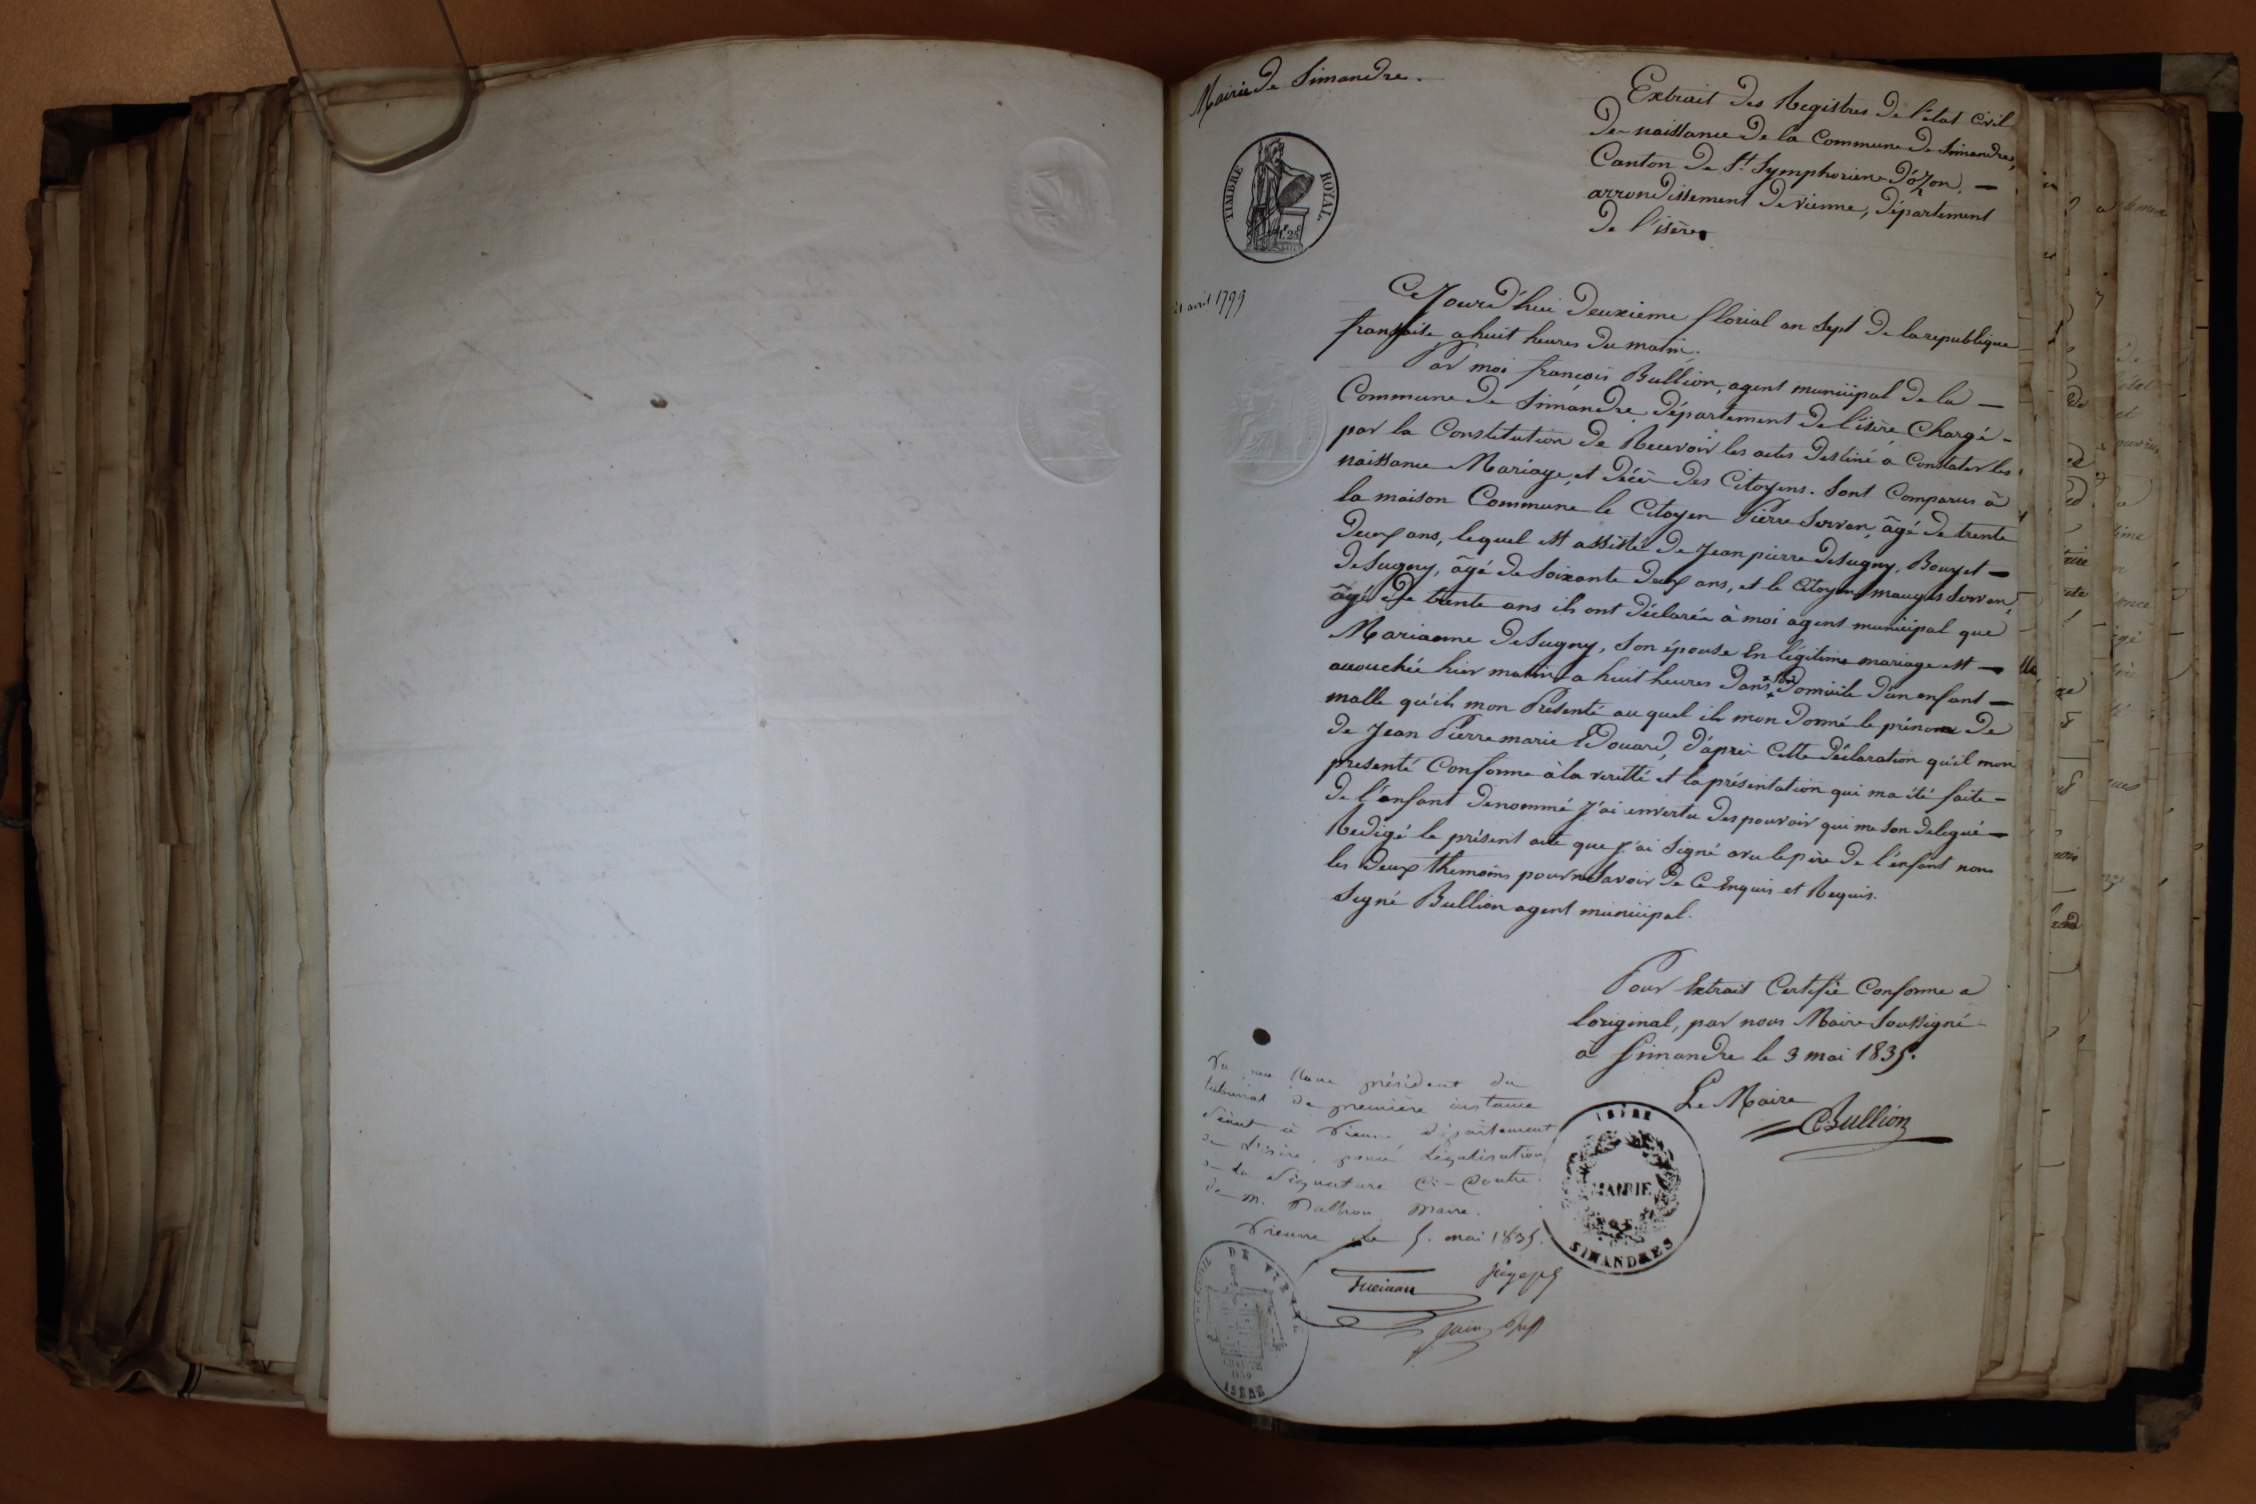 Mairie de Simandre.
Extrait des Registres de l'état Civil
de naissance de la Commune de Simandres,
Canton de St. Symphorien d'ôzon, —
arrondissement de vienne, département
de l'isère.
TIMBRE ROYAL.
1f. 25c
21 avril 1799
Ce Jourd'hui deuxieme florial an Sept de la republique
française, a huit heures du matin.
Par moi françois Bullion, agent municipal de la —
Commune de Simandre, département de l'isère Chargé -
par la Constitution de Recevoir les actes destiné a Constater les
naissance Mariage, et décè des Citoyens. Sont Comparus à
la maison Commune le Citoyen Pierre Servan, âgé de trente
deux ans, lequel est assisté de Jean pierre desugny, Bouyet —
desugny, âgé de Soixante deux ans, et le Citoyen mauyis Servan,
âgé de trente ans ils ont déclarér à moi agent municipal que
Marianne desugny, Son épouse En légitime mariage est —
accouchée hier matin a huit heures dans son domicile d'un enfant —
malle qu'ils mon Présenté auquel ils mon donné le prénom de
de Jean Pierre marie Edouard, d'aprèr Cette déclaration qu'il mon
presenté Conforme à la veritté et la présentation qui ma été faite -
de l'enfant dénommé J'ai envertu des pouvoir qui me Son delegué —
Redigé le présent acte que j'ai Signé avec le père de l'enfant non
les deux themoins pour ne Savoir de Ce Enquis et Requis.
Signé Bullion agent municipal.
Pour Extrait Certifié Conforme a
l'original, par nous Maire Soussigné
à Simandre le 3 mai 1835.
Le Maire
Bullion
Vu par nous président du
tribunal de première instance
séant à Vienne, département
de l'isère, pour législation
de la Signature Ci-Contre
de M. Bullion Maire.
Vienne le 5. mai 1835.
ISÈRE
MAIRIE
DE
SIMANDRES
DE VIENNE
CHARTE
ISERE